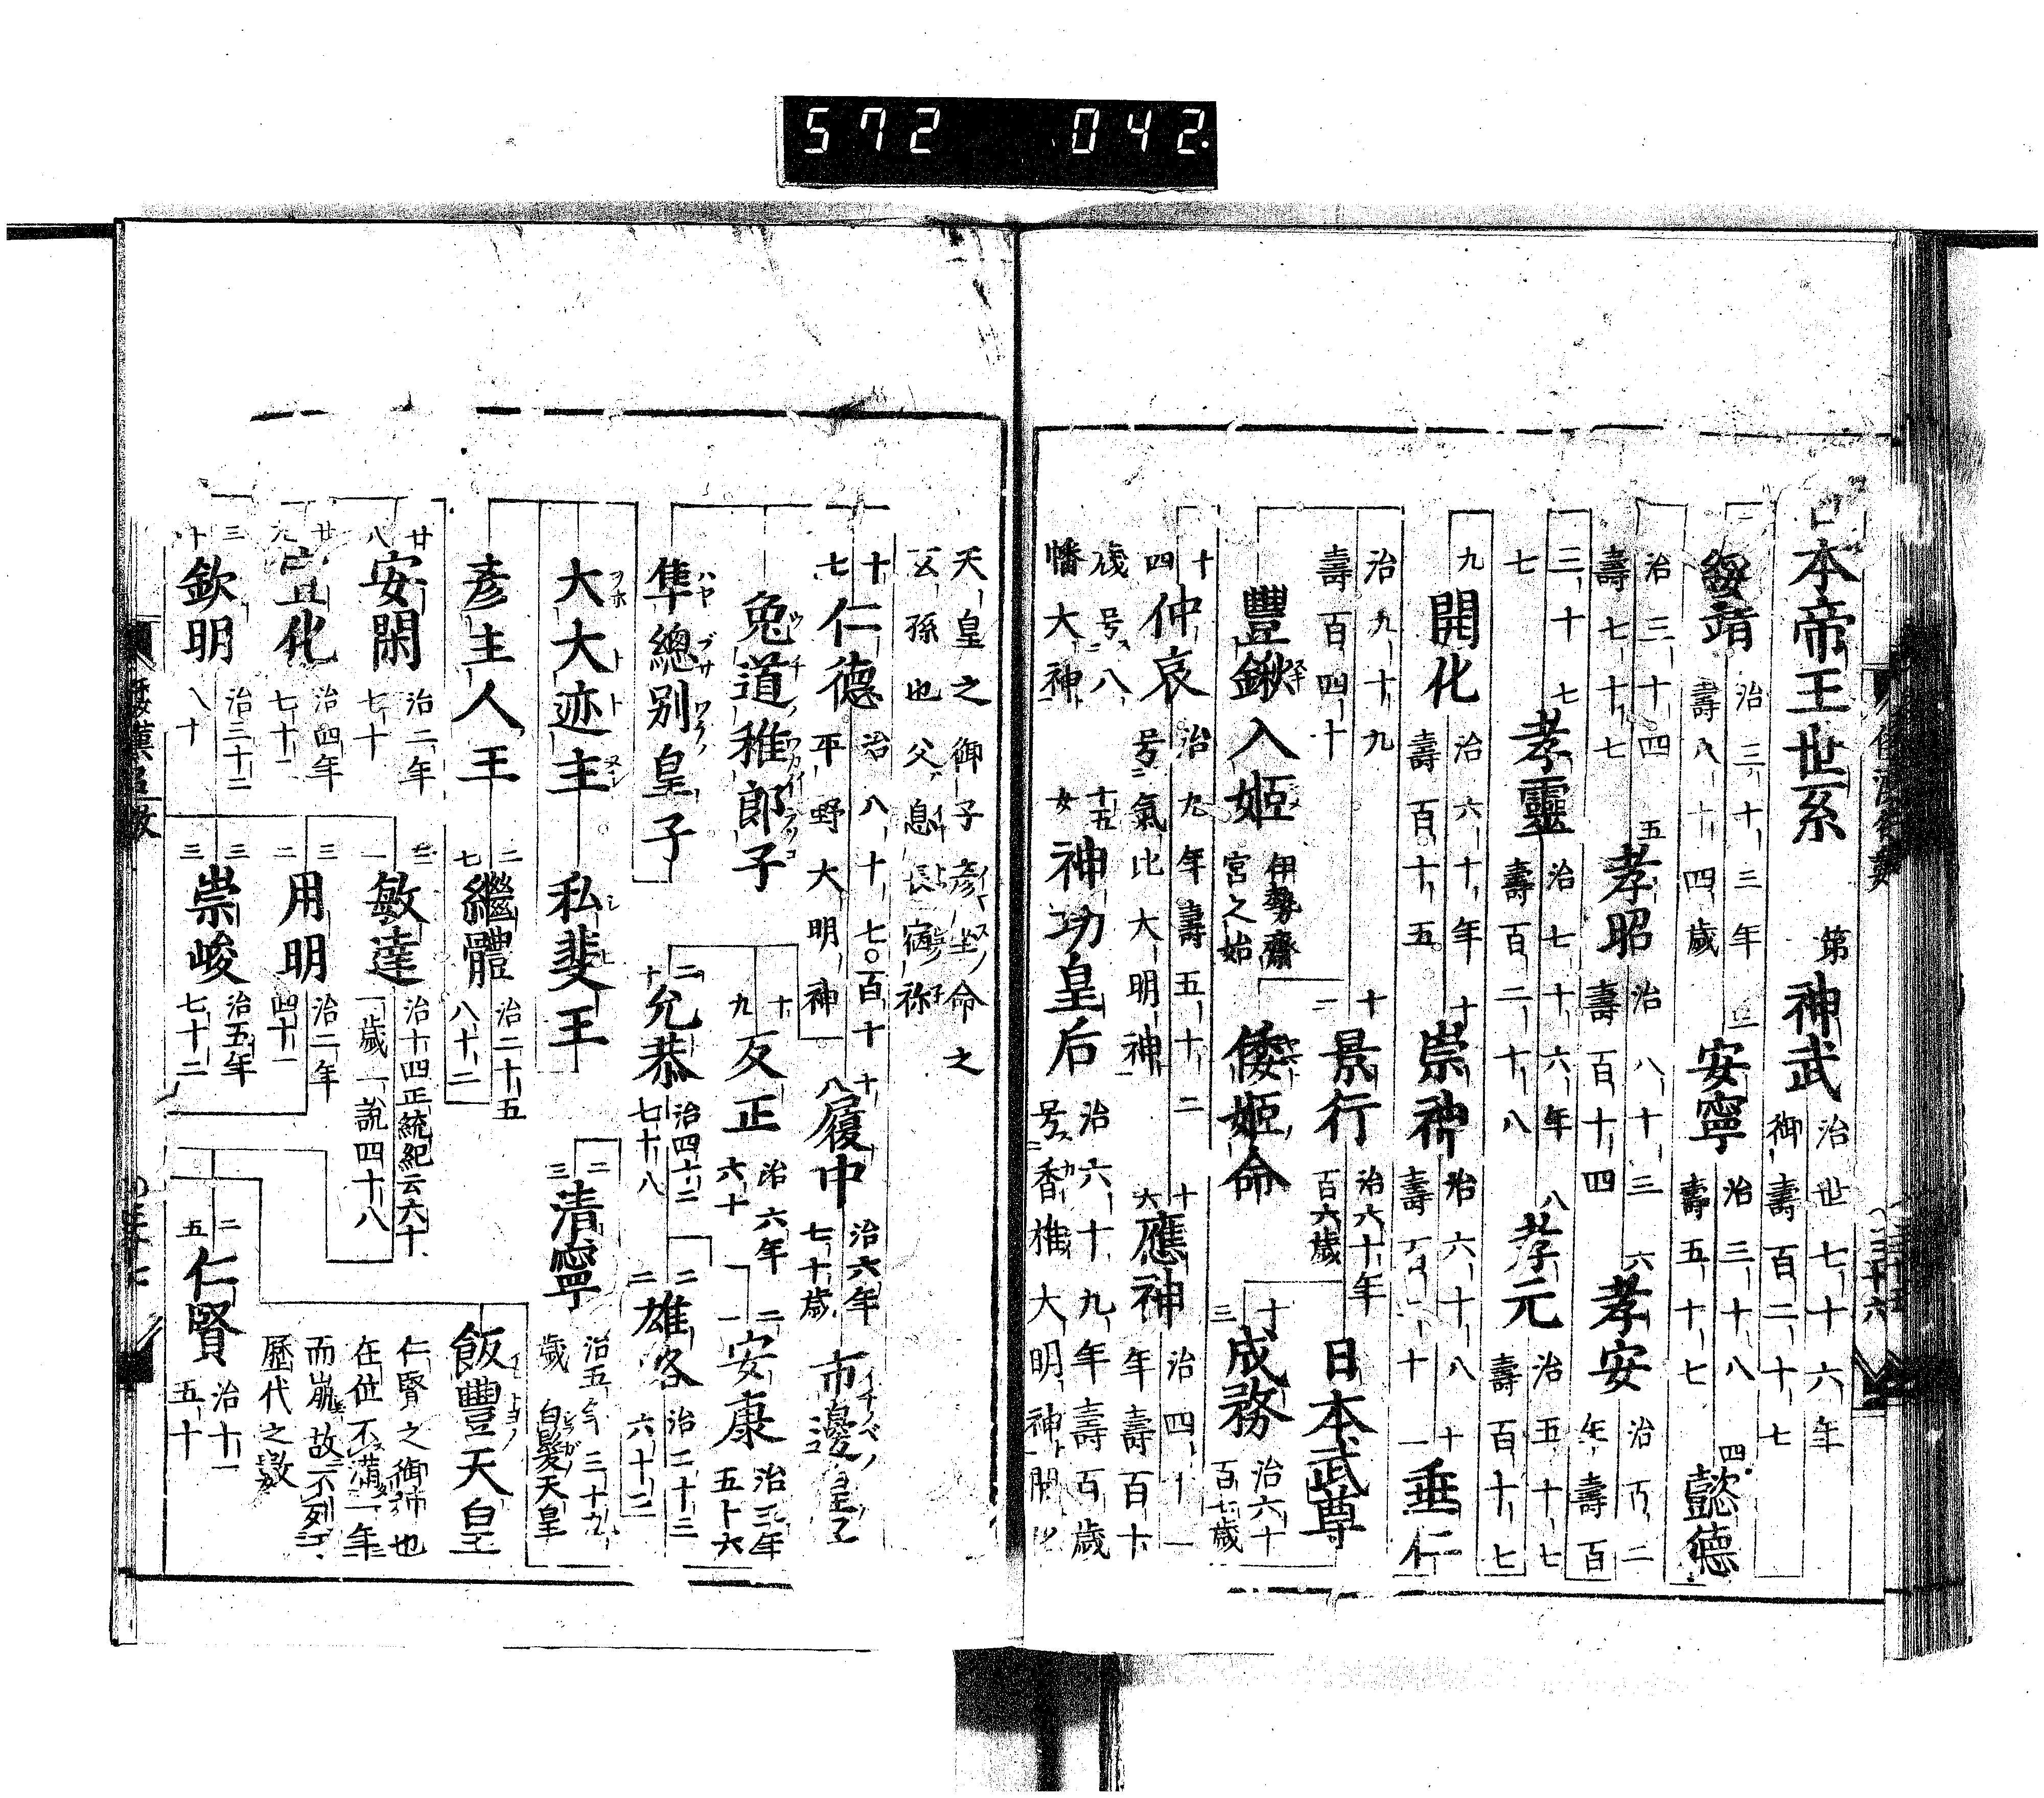 572 042
日本帝王世系
第
神武
治世七十六年
御壽百二十七
二
綏靖
治三十三年
壽八十四歲
三
安寧
治三十八
壽五十七
四
懿德
治三十四
壽七十七
五
孝昭
治八十三
壽百十四
六
孝安
治百二
年壽百
三十七
七
孝靈
治七十六年
壽百二十八
八
孝元
治五十七
壽百十七
九
開化
治六十年
壽百十五
十
崇神
治六十八
十一
垂仁
治九十九
壽百四十
十二
景行
治六十年
百六歲
日本武尊
豐鍬入姬
伊勢齋
宮之始
倭姬命
十三
成務
治六十
百七歲
十四
仲哀
治九年壽五十二
号氣比大明神
十六
應神
治四十一
年壽百十
歲号八
幡大神
十五
女
神功皇后
治六十九年壽百歲
号香椎大明神
天皇之御子彥坐命之
玄孫也父息長宿祢
十七
仁德
治八十七○百十
平野大明神
十八
履中
治六年
七十歲
市邊皇子
兔道稚郎子
十九
反正
治六年
六十
二一
安康
治三年
五十六
隼總别皇子
二十
允恭
治四十二
七十八
二二
雄畧
治二十三
六十二
大大迹主
私斐王
二三
清寧
治五年三十九
歲 白髮天皇
彥主人王
二七
繼體
治二十五
八十二
飯豐天皇
仁賢之御姉也
在位不滿一年
而崩故不列
歷代之數
廿八
安閑
治二年
七十
敏達
治十四正統紀云六十
一歲一說四十八
廿九
宣化
治四年
七十一
三二
用明
治二年
四十一
三十
欽明
治三十二
八十
三三
崇峻
治五年
七十二
二五
仁賢
治十一
五十